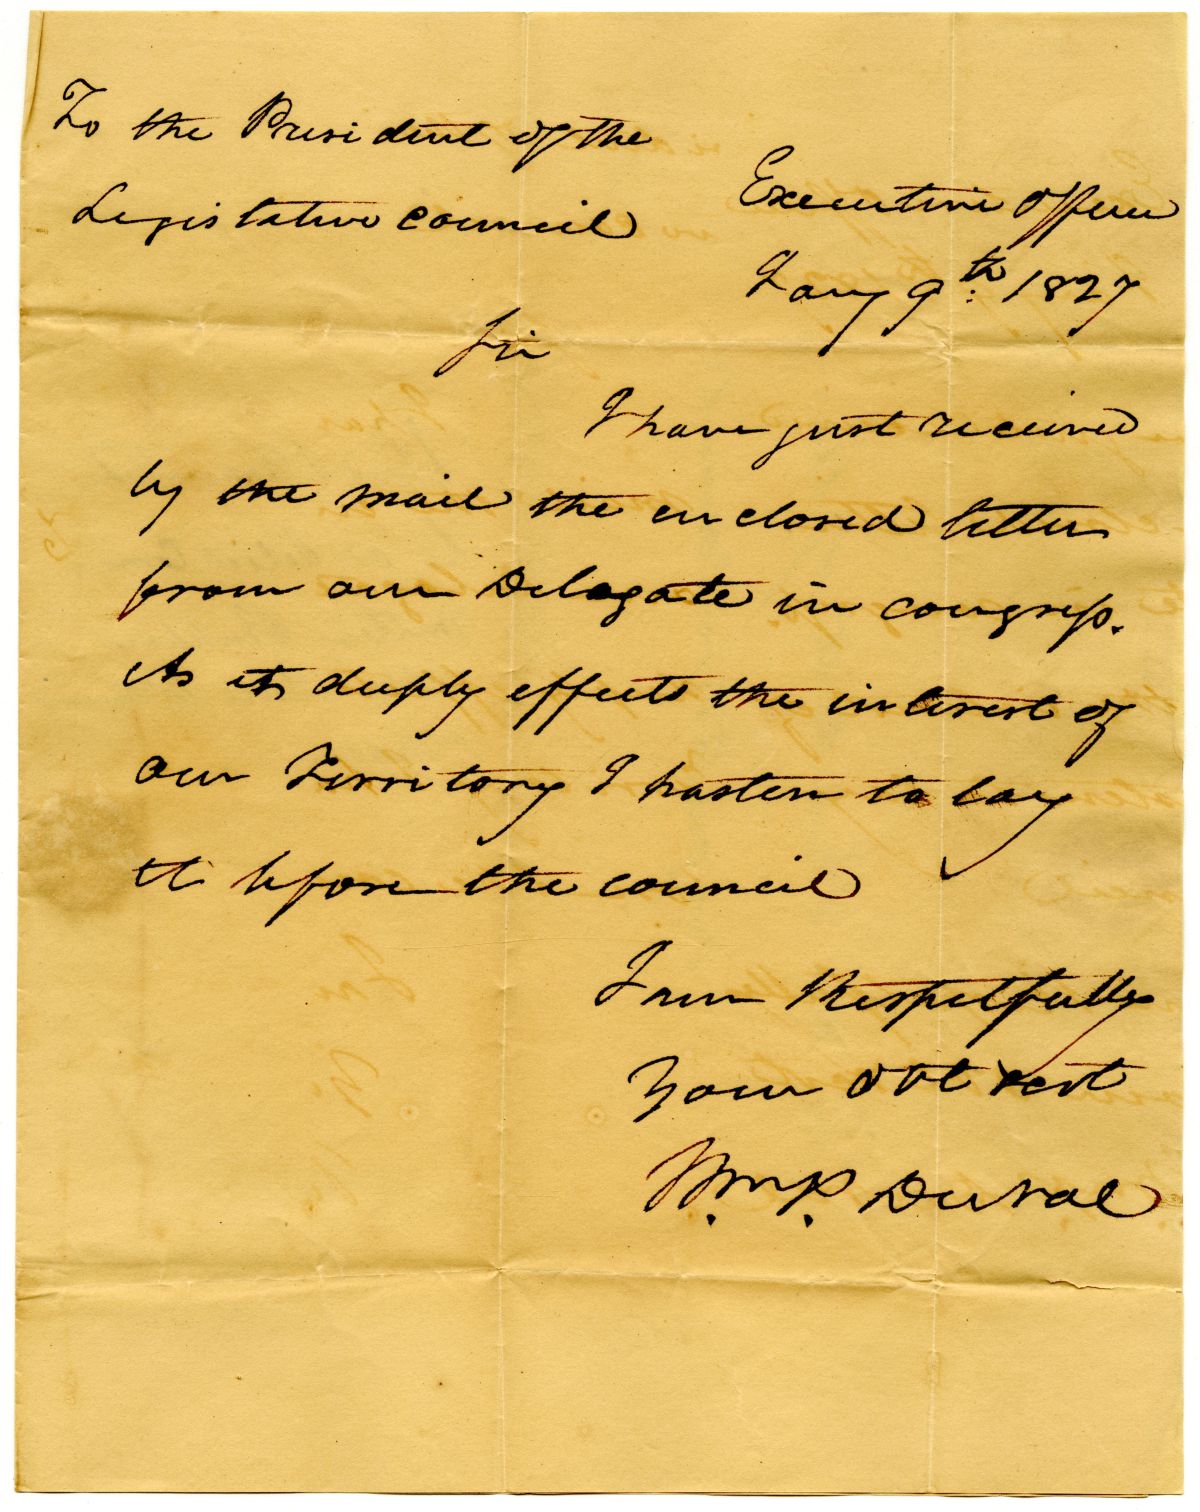 To the President of the
Legislative council
Executive Office
Jany 9th: 1827
Sir
I have just received
by the mail the enclosed letter
from our Delegate in congress.
As it deeply effects the interest of
our Territory I hasten to lay
it before the council
I am Respetfully
Your obt sevt
Wm. P. Duval